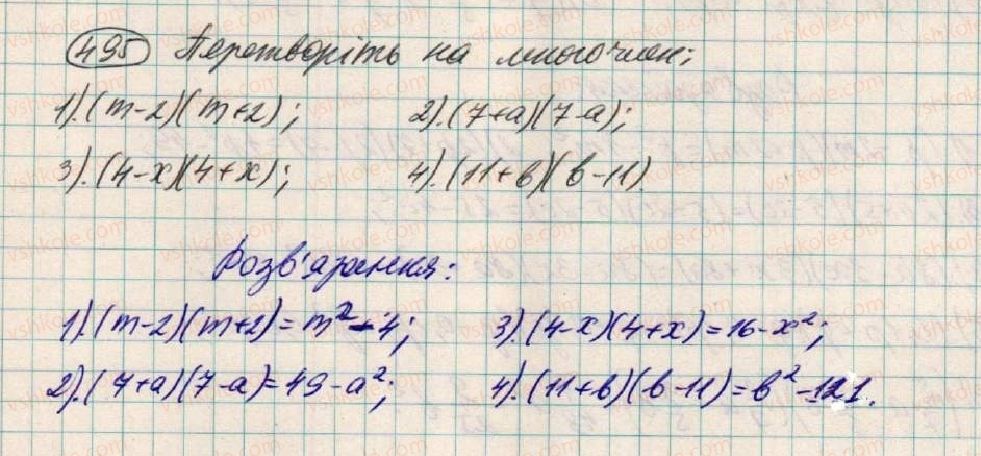 495 Перетворіть на многочлен;
1).(m-2)(m+2); 2).(7+a)(7-a);
3).(4-x)(4+x); 4).(11+в)(в-11)
Розв'язання:
1).(m-2)(m+2)=m²-4; 3).(4-x)(4+x)=16-x²;
2).(7+a)(7-a)=49-a²; 4).(11+в)(в-11)=в²-121.